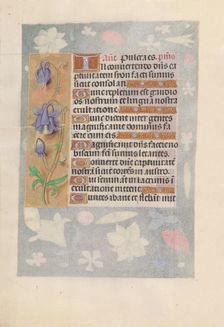 In convertendo dns ca
ptiuitatem syon facti sumus
sicut consolati
Tunc repletum est gaudio
os nostrum et lingua nostra
exultatione
Tunc dicent inter gentes
magnificauit dominus face
Magnificauit dns facere no
biscum facti sumus letantes
Conuerte dne captiuitate
nostra sicut torrens in austro
Qui seminant in lacrimis i
exultatione metent
Euntes ibant et flebant mit